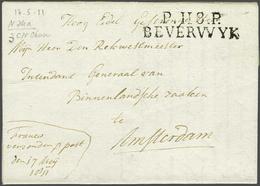 17.5.11
P.118.P.
BEVERWYK
Hoog Edel
Mijn Heer Den Rekwestmeester
Intendant Generaal van
Binnenlandsche zaaken
te
Amsterdam
Franco
verzonden p post
den 17 Meij
1811